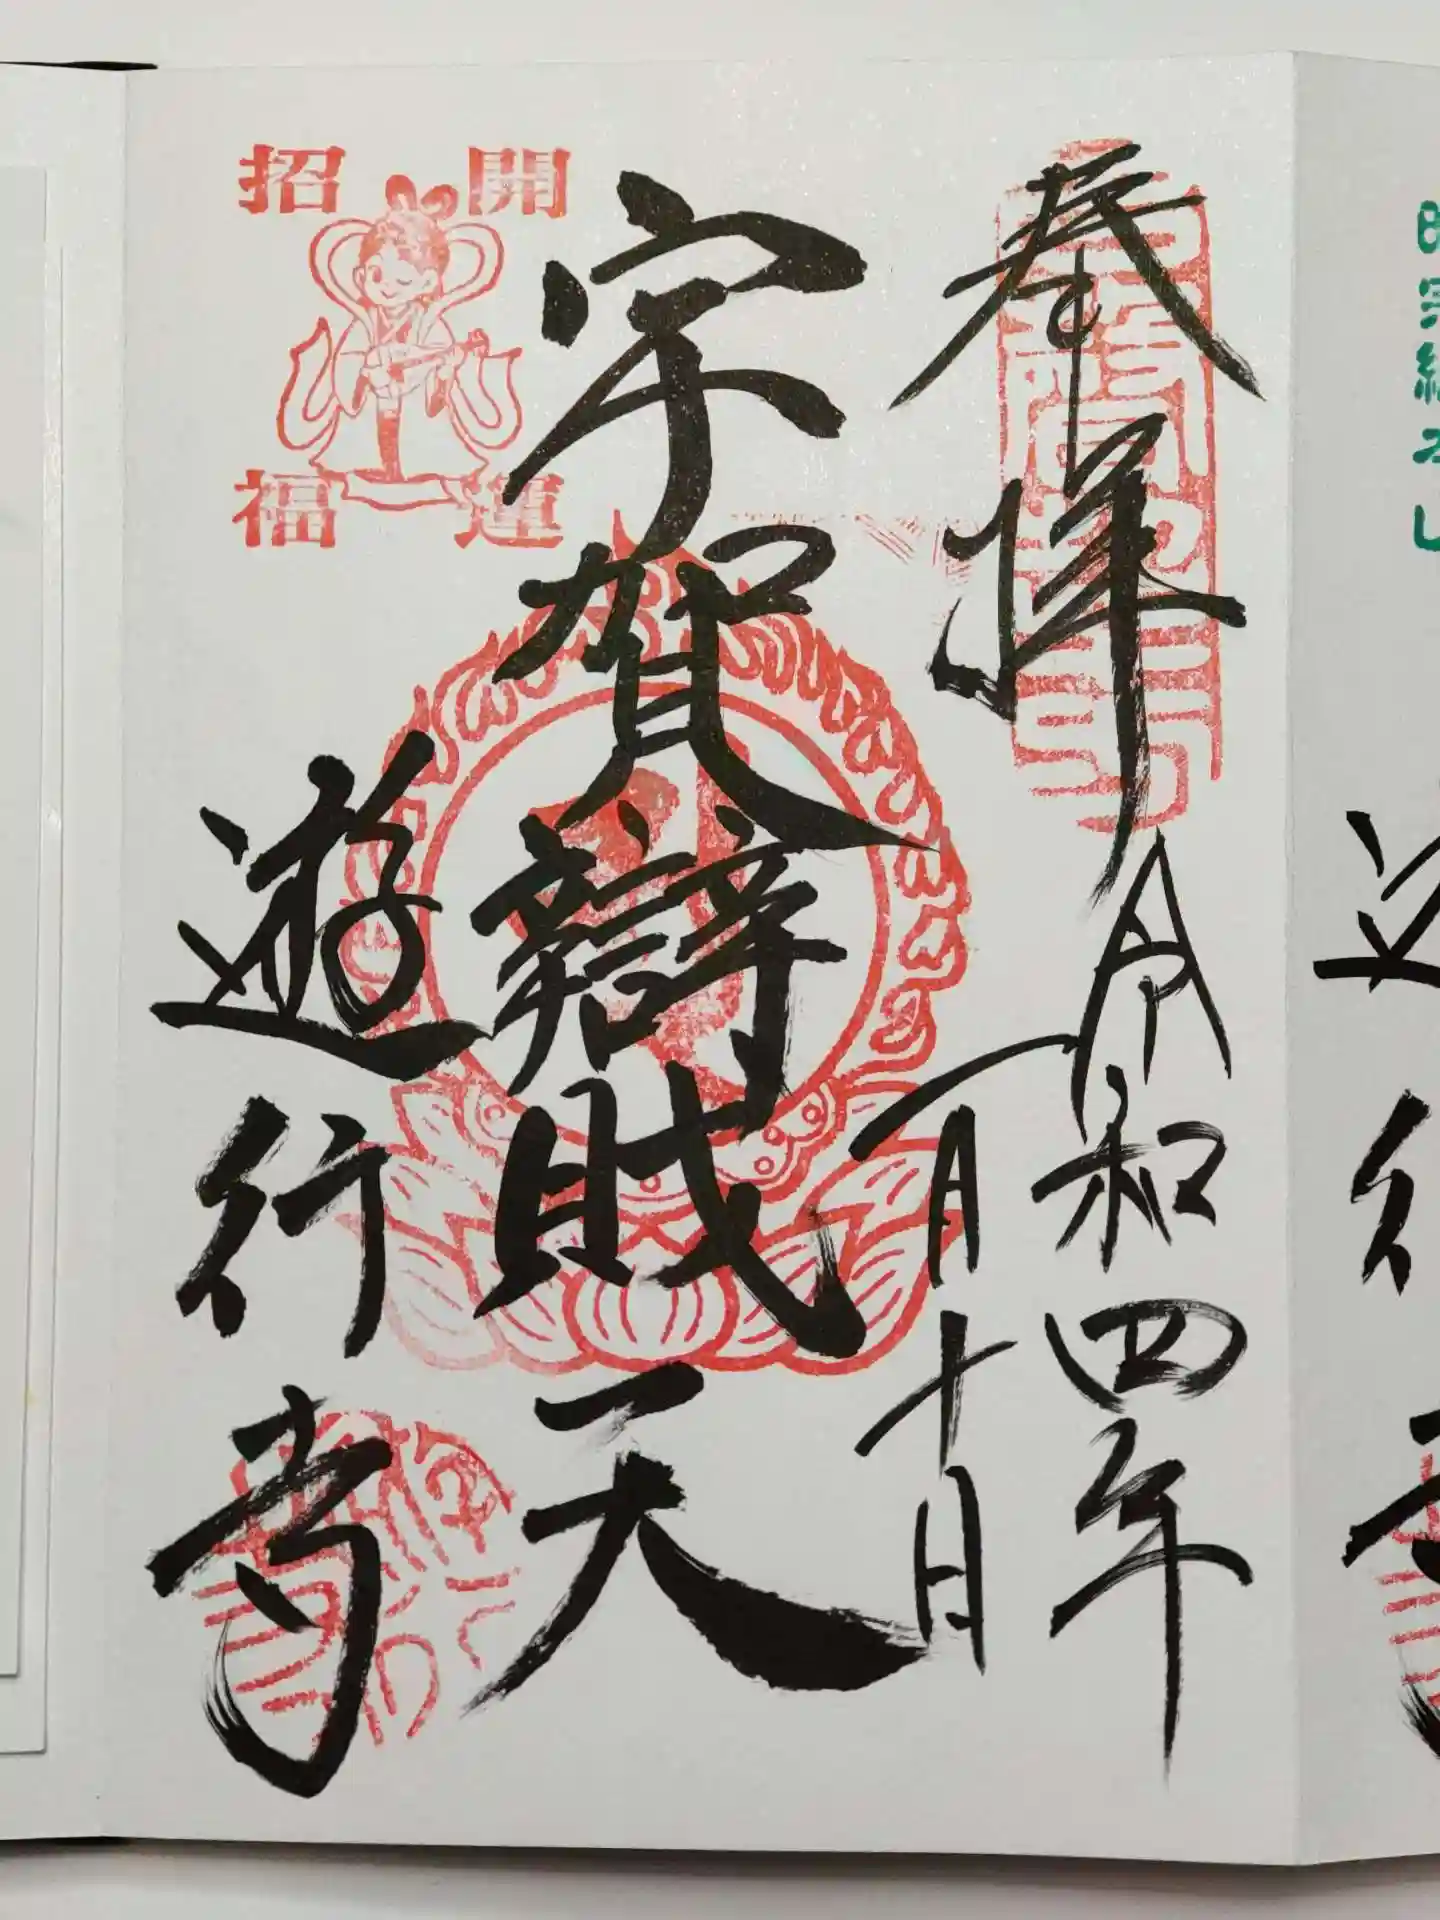 奉拝
令和四年
一月十日
宇賀辯財天
開運
招福
遊行寺